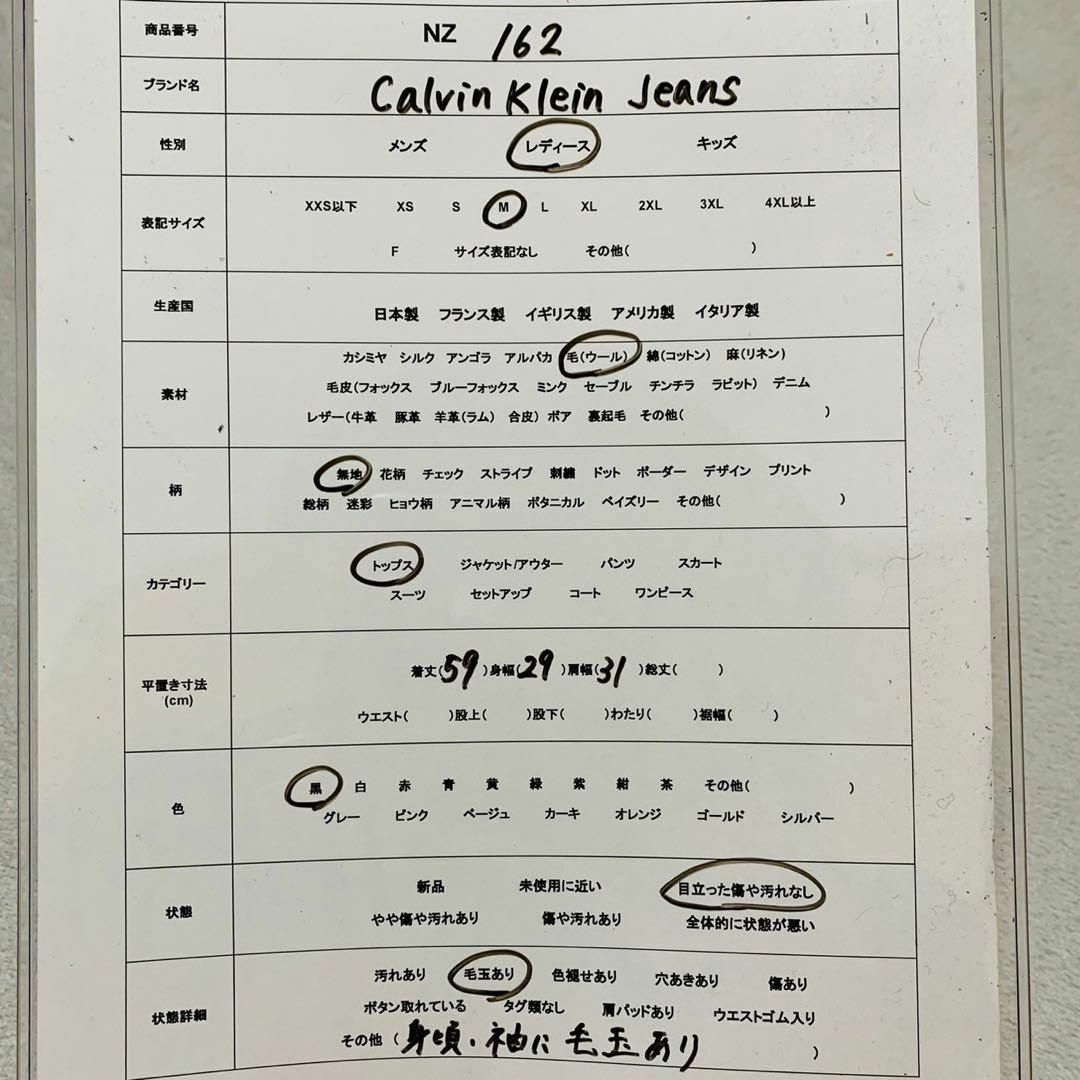 商品番号 NZ 162
ブランド名 Calvin Klein Jeans
性別 メンズ レディース キッズ
表記サイズ XXS以下 XS S M L XL 2XL 3XL 4XL以上
F サイズ表記なし その他( )
生産国 日本製 フランス製 イギリス製 アメリカ製 イタリア製
素材 カシミヤ シルク アンゴラ アルパカ 毛(ウール) 綿(コットン) 麻(リネン)
毛皮(フォックス ブルーフォックス ミンク セーブル チンチラ ラビット) デニム
レザー(牛革 豚革 羊革(ラム) 合皮) ボア 裏起毛 その他( )
柄 無地 花柄 チェック ストライプ 刺繍 ドット ボーダー デザイン プリント
総柄 迷彩 ヒョウ柄 アニマル柄 ボタニカル ペイズリー その他( )
カテゴリー トップス ジャケット/アウター パンツ スカート
スーツ セットアップ コート ワンピース
平置き寸法 着丈(59)身幅(29)肩幅(31)総丈( )
(cm) ウエスト( )股上( )股下( )わたり( )裾幅( )
色 黒 白 赤 青 黄 緑 紫 紺 茶 その他( )
グレー ピンク ベージュ カーキ オレンジ ゴールド シルバー
状態 新品 未使用に近い 目立った傷や汚れなし
やや傷や汚れあり 傷や汚れあり 全体的に状態が悪い
状態詳細 汚れあり 毛玉あり 色褪せあり 穴あきあり 傷あり
ボタン取れている タグ類なし 肩パッドあり ウエストゴム入り
その他 ( 身頃・袖に毛玉あり )